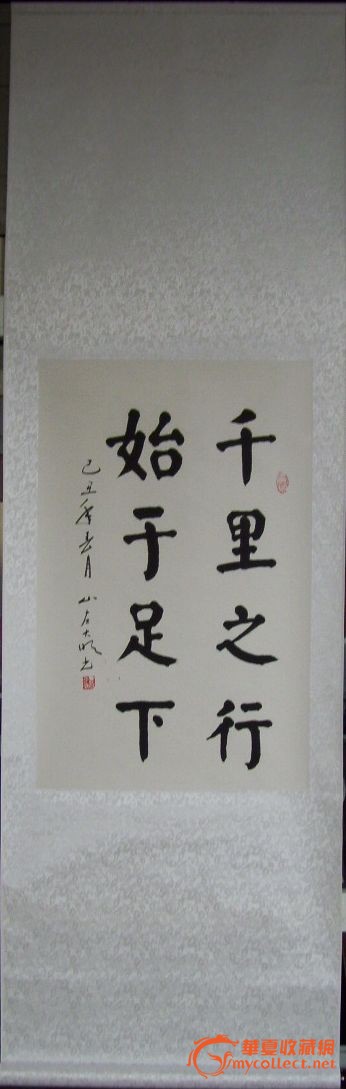 千里之行
始于足下
己丑年春月 山石大明书
華夏收藏網
mycollect.net